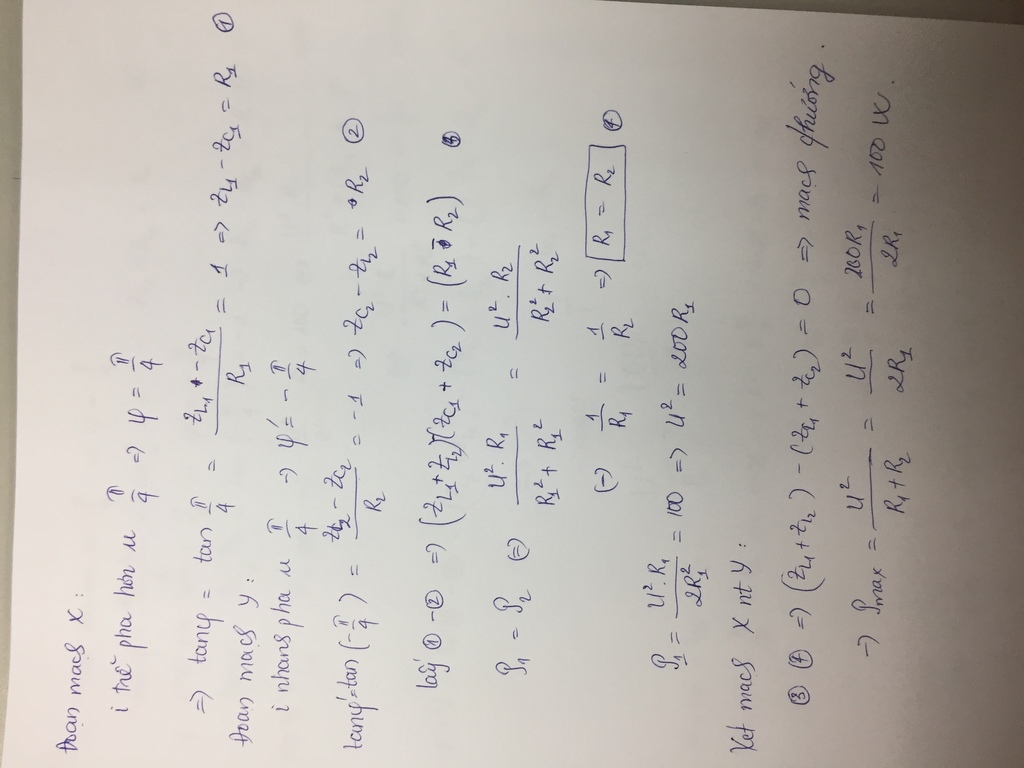 Đoạn mạch X :
i trễ pha hơn u π/4 => φ = π/4
=> tanφ = tan π/4 = (Z_L1 - Z_C1)/R_1 = 1 => Z_L1 - Z_C1 = R_1 ①
Đoạn mạch Y :
i nhanh pha u π/4 -> φ' = -π/4
tanφ' = tan(-π/4) = (Z_L2 - Z_C2)/R_2 = -1 => Z_C2 - Z_L2 = R_2 ②
lấy ① - ② => (Z_L1 + Z_L2)-(Z_C1 + Z_C2) = (R_1 - R_2) ③
P_1 = P_2 (=) U².R_1/(R_1² + R_1²) = U².R_2/(R_2² + R_2²)
(-) 1/R_1 = 1/R_2 => R_1 = R_2 ④
P_1 = U².R_1/2R_1² = 100 => U² = 200R_1
Xét mạch X nt Y :
③ ④ => (Z_L1 + Z_L2) - (Z_C1 + Z_C2) = 0 => mạch c/hưởng.
-> P_max = U²/(R_1 + R_2) = U²/2R_1 = 200R_1/2R_1 = 100 W.